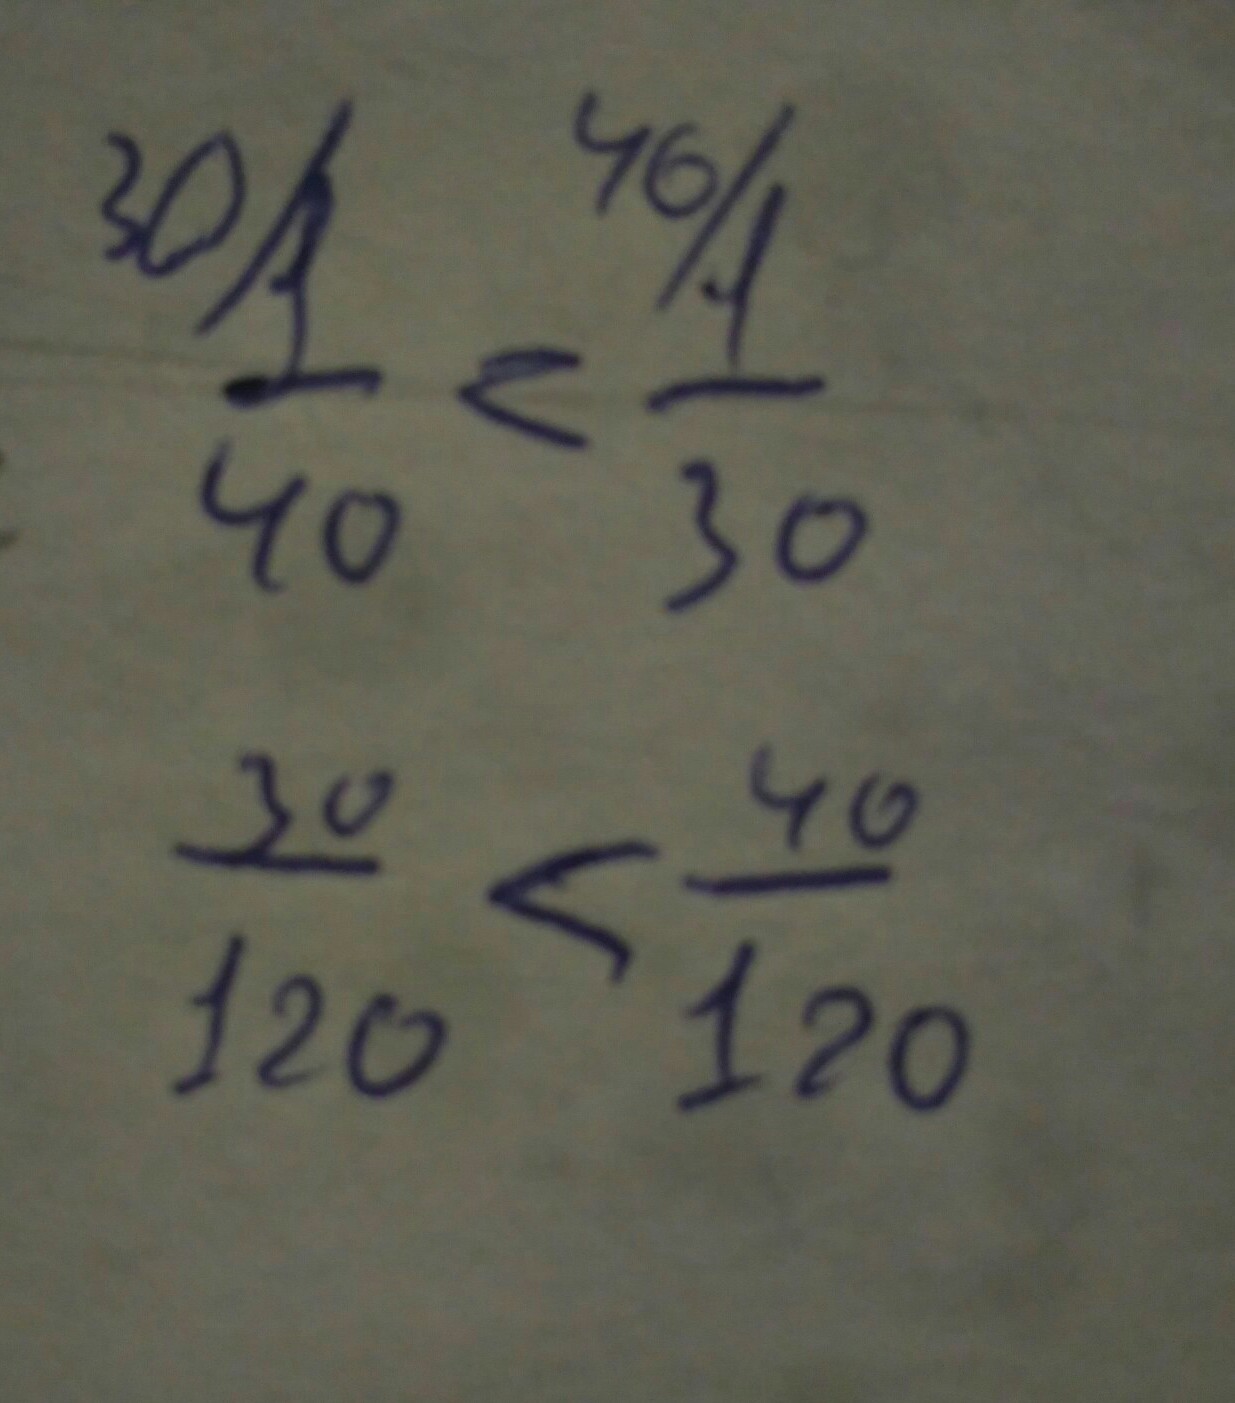 30/1/40 < 40/1/30
30/120 < 40/120